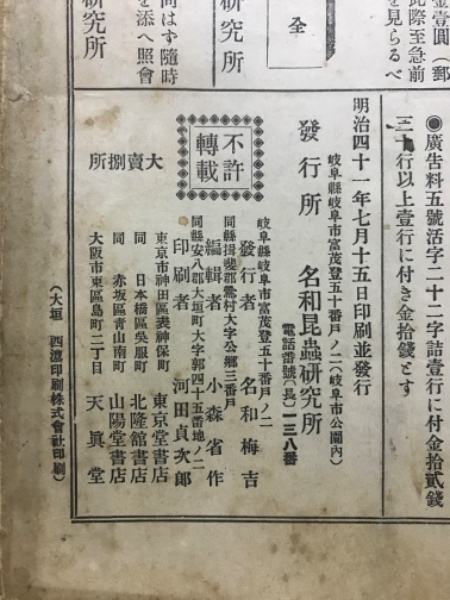 金壹圓（郵
此際至急前
を見らるべ
全
研究所
問はず隨時
を添へ照會
研究所
◉廣告料五號活字二十二字詰壹行に付金拾貳錢
三十行以上壹行に付き金拾錢とす
明治四十一年七月十五日印刷並發行
岐阜縣岐阜市富茂登五十番戶ノ二（岐阜市公園內）
發行所　名和昆蟲研究所
電話番號（長）一三八番
不許
轉載
岐阜縣岐阜市富茂登五十番戶ノ二
發行者　名和梅吉
同縣揖斐郡鶯村大字公鄉三番戶
編輯者　小森省作
同縣安八郡大垣町大字郭四十五番地ノ二
印刷者　河田貞次郎
大賣捌所
東京市神田區表神保町　東京堂書店
同　日本橋區吳服町　北隆館書店
同　赤坂區靑山南町　山陽堂書店
大阪市東區島町二丁目　天眞堂
（大垣　西濃印刷株式會社印刷）